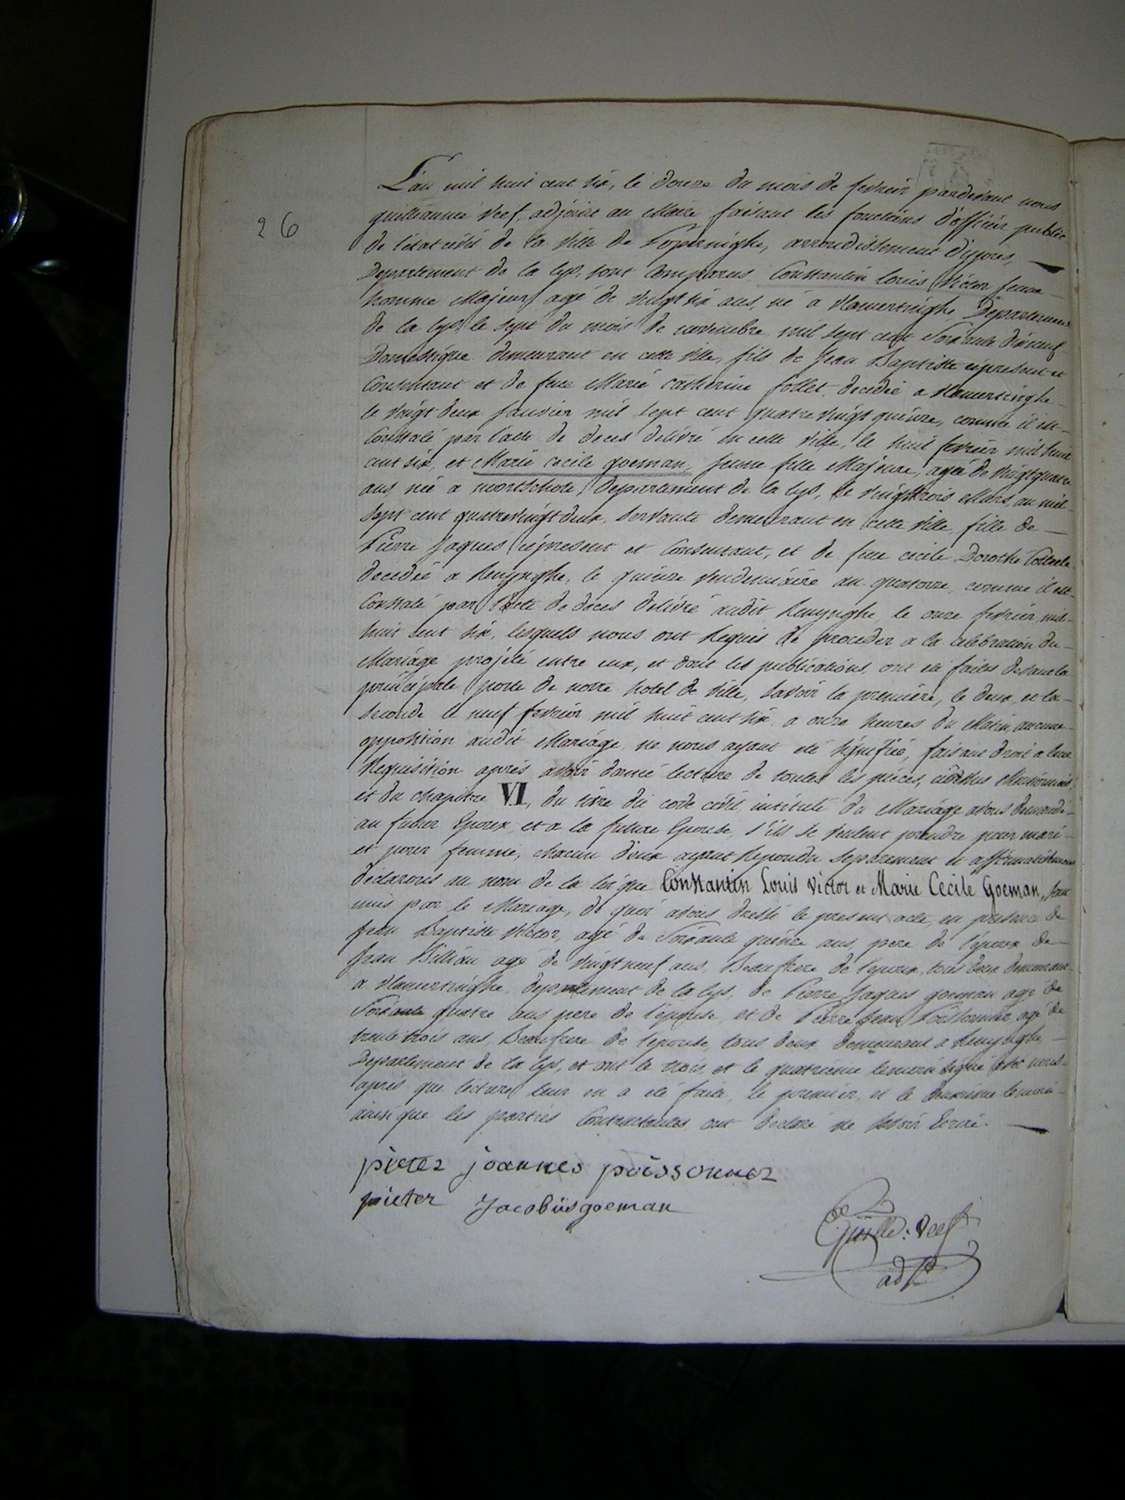 26
L'an mil huit cent six, le douze du mois de fevrier pardevant nous
guillaume Veef adjoint au Maire faisant les fonctions d'officier public
de l'etat civil de la ville de Poperinghe, arrondissement d'ypres,
Departement de la Lys, sont comparus Constantin Louis Victor jeune
homme Majeur, agé de vingt six ans, né a vlamertinghe Departement
de la Lys, le sept du mois de novembre mil sept cent soixante dixneuf
Domestique demeurant en cette ville, fils de Jean Baptiste cipresent et
Consentant et de feue Marie catherine follet decedée a vlamertinghe
le vingt deux janvier mil sept cent quatre vingt quinze, comme il est
Constaté par l'acte de deces delivré en cette ville, le huit fevrier mil huit
cent six, et Marie cecile goeman, jeune fille Majeure, agée de vingt quatre
ans née a noordschote, Departement de la Lys, le vingt trois Mars, an mil
sept cent quatrevingt deux, Servante demeurant en cette ville, fille de
Pierre Jaques cipresent et Consentant, et de feue cecile Dorothe
decedée a Renynghe, le quinze vendemiaire an quatorze, comme il est
Constaté par l'acte de deces delivré audit Renynghe le onze fevrier mil
huit cent six, lesquels nous ont Requis de proceder a la celebration du
Mariage projeté entre eux, et dont les publications ont eté faites devant la
principale porte de notre hotel de ville, savoir la première, le deux, et la
Seconde le neuf fevrier mil huit cent six, a onze heures du Matin, aucune
opposition audit Mariage ne nous ayant eté signifiée, faisant droit a leur
Requisition après avoir donné lecture de toutes les pièces, cidessus mentionnées
et du chapitre VI, du titre du code civil intitulé du Mariage avons demandé
au futur Epoux, et a la future Epouse, s'ils se veulent prendre pour mari
et pour femme, chacun d'eux ayant Repondu separement et affirmativement
declarons au nom de la loi que Constantin Louis Victor et Marie Cecile Goeman, sont
unis par le Mariage, de quoi avons dressé le present acte, en presence de
Jean Baptiste Victor, agé de soixante quinze ans, pere de l'epoux de
Jean agé de vingt neuf ans, Beaufrere de l'epoux, tous deux demeurant
a vlamertinghe departement de la Lys, de Pierre Jaques goeman agé de
soixante quatre ans pere de l'epouse, et de Pierre Jean Poissonnier, agé de
trente trois ans, Beaufrere de l'epouse, tous deux demeurant a Renynghe
Departement de la Lys, et ont le trois, et le quatrieme temoin signé avec nous
après que lecture leur en a eté faite, le premier, et le deuxième temoin
ainsi que les parties Contractantes ont declaré ne savoir Ecrire.
pieter joannes poissonner
pieter Jacobus goeman
Guille: Veef
adjt